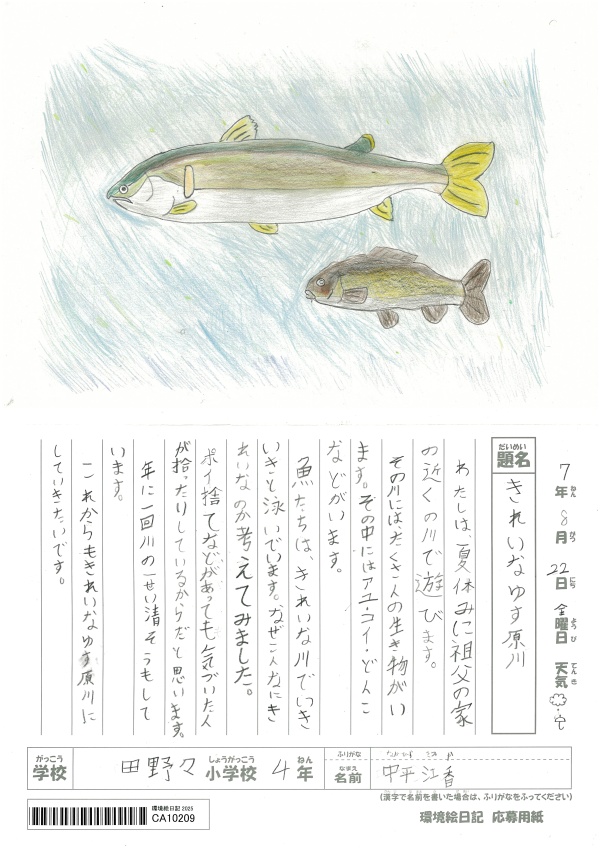 7年8月22日金曜日 天気
ねん がつ にち ようび てんき
だいめい
題名 きれいなゆす原川
わたしは、夏休みに祖父の家
の近くの川で遊びます。
その川には、たくさんの生き物がい
ます。その中にはアユ・コイ・どんこ
などがいます。
魚たちは、きれいな川でいき
いきと泳いでいます。なぜこんなにき
れいなのか考えてみました。
ポイ捨てなどがあっても気づいた人
が拾ったりしているからだと思います。
年に一回川の一せい清そうもして
います。
これからもきれいなゆす原川に
していきたいです。
がっこう しょうがっこう ねん ふりがな
学校 田野々小学校 4年
なまえ
名前 中平江香
(漢字で名前を書いた場合は、ふりがなをふってください)
環境絵日記 2025
CA10209
環境絵日記 応募用紙